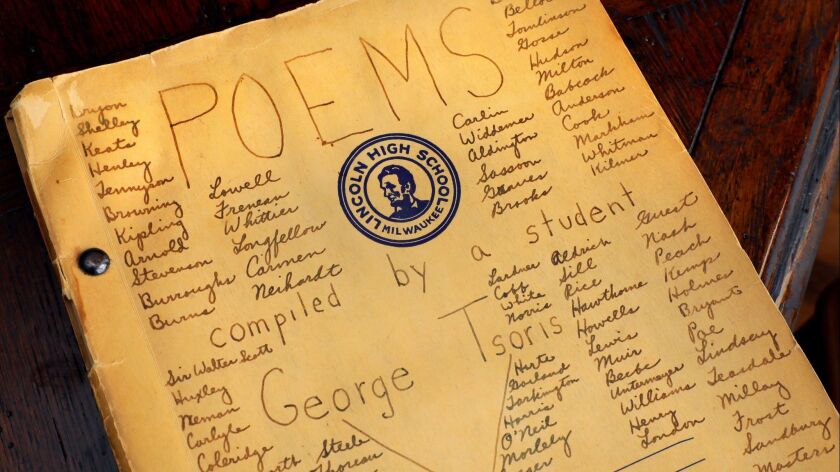 POEMS
LINCOLN HIGH SCHOOL
MILWAUKEE
compiled by a student
George Tsoris
Shelley
Keats
Henley
Tennyson
Browning
Kipling
Arnold
Stevenson
Burroughs
Burns
Lowell
Freneau
Whittier
Longfellow
Carmen
Neihardt
Carlin
Widdemer
Aldington
Sassoon
Graves
Brooks
Belloc
Tomlinson
Gosse
Hudson
Milton
Babcock
Anderson
Cook
Markham
Whitman
Kilmer
Sir Walter Scott
Huxley
Neman
Carlyle
Coleridge
Steele
Thoreau
Lardner
Cobb
White
Norris
Aldrich
Sill
Rice
Hawthorne
Howells
Lewis
Muir
Beebe
Untermeyer
Williams
Henry
London
Harte
Garland
Tarkington
Harris
O'Neil
Morley
Guest
Nash
Peach
Kemp
Holmes
Bryant
Poe
Lindsay
Teasdale
Millay
Frost
Sandburg
Masters